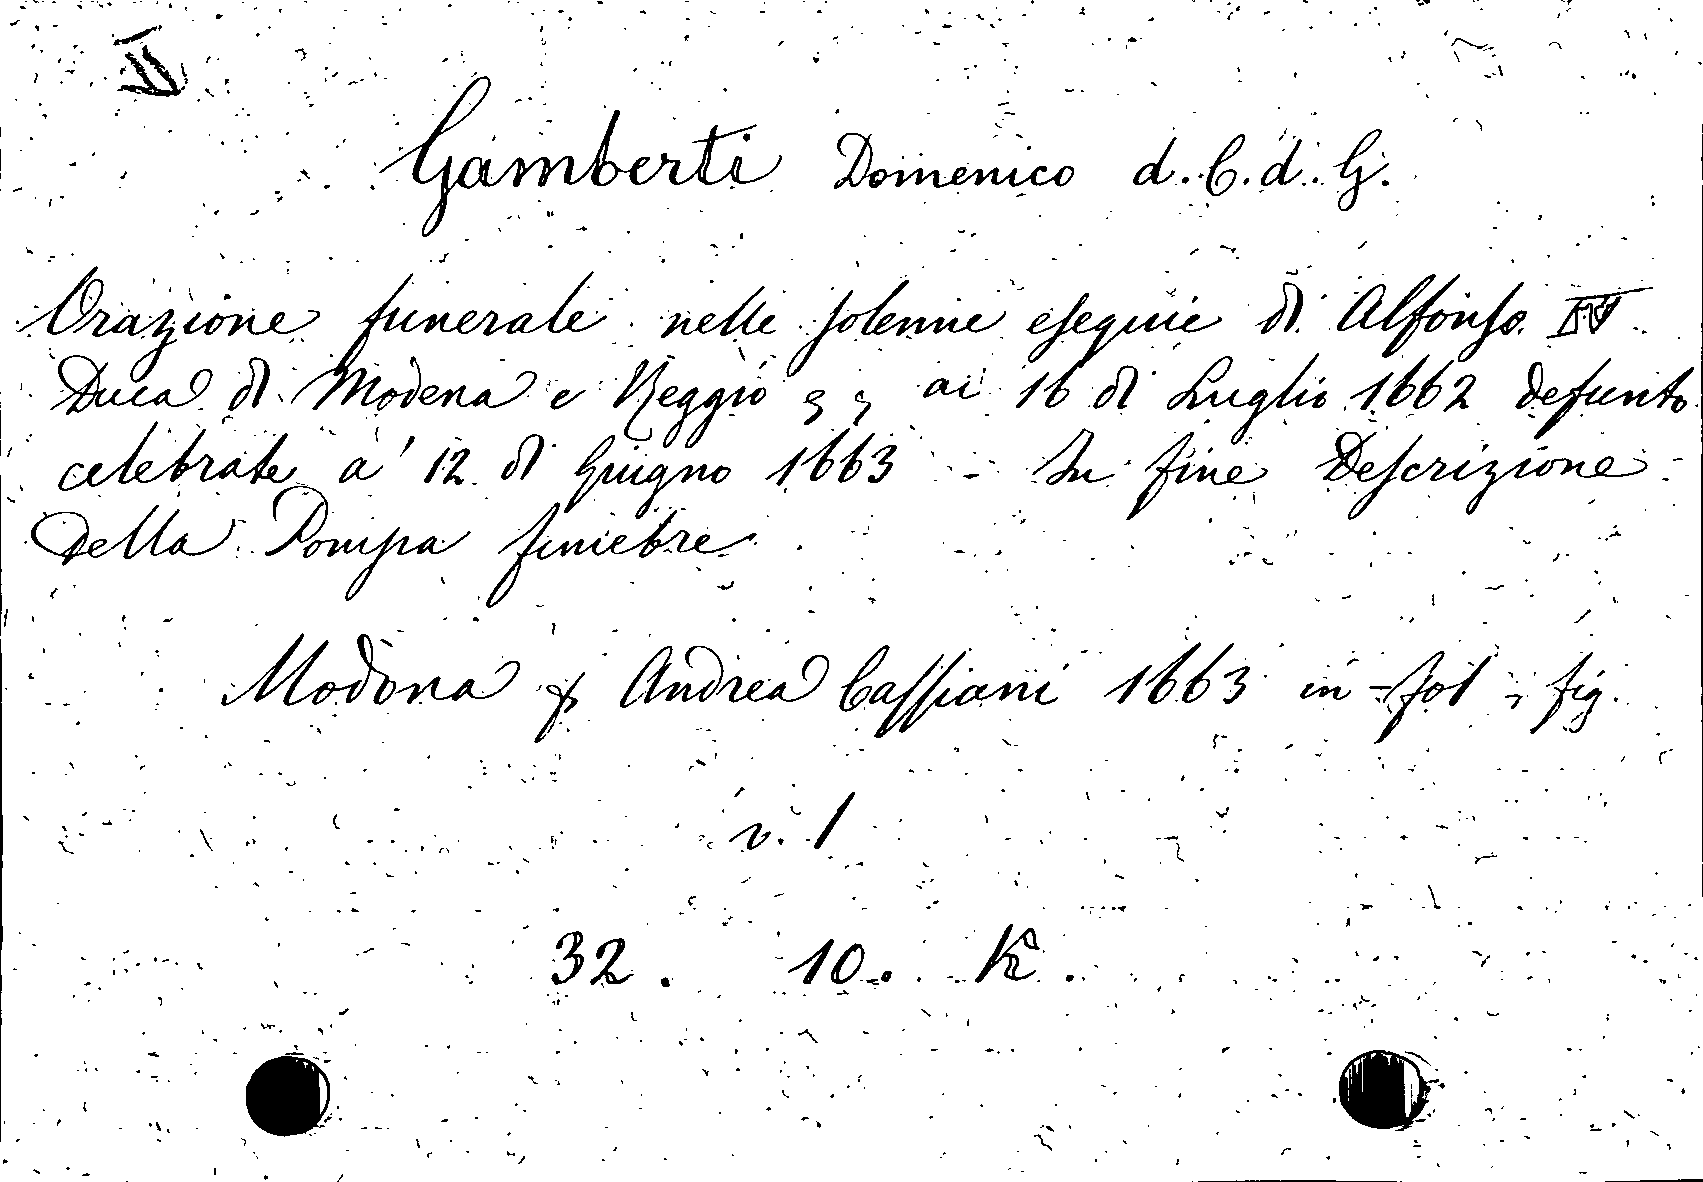 Gamberti Domenico d. C. d. G.
Orazione funerale nelle solenni esequie di Alfonso IV
Duca di Modena e Reggio ai 16 di Luglio 1662 defunto
celebrate a' 12 di Giugno 1663 - In fine Descrizione
della Pompa funebre
Modona Andrea Cassiani 1663 in-fol fig.
v. 1
32. 10. K.